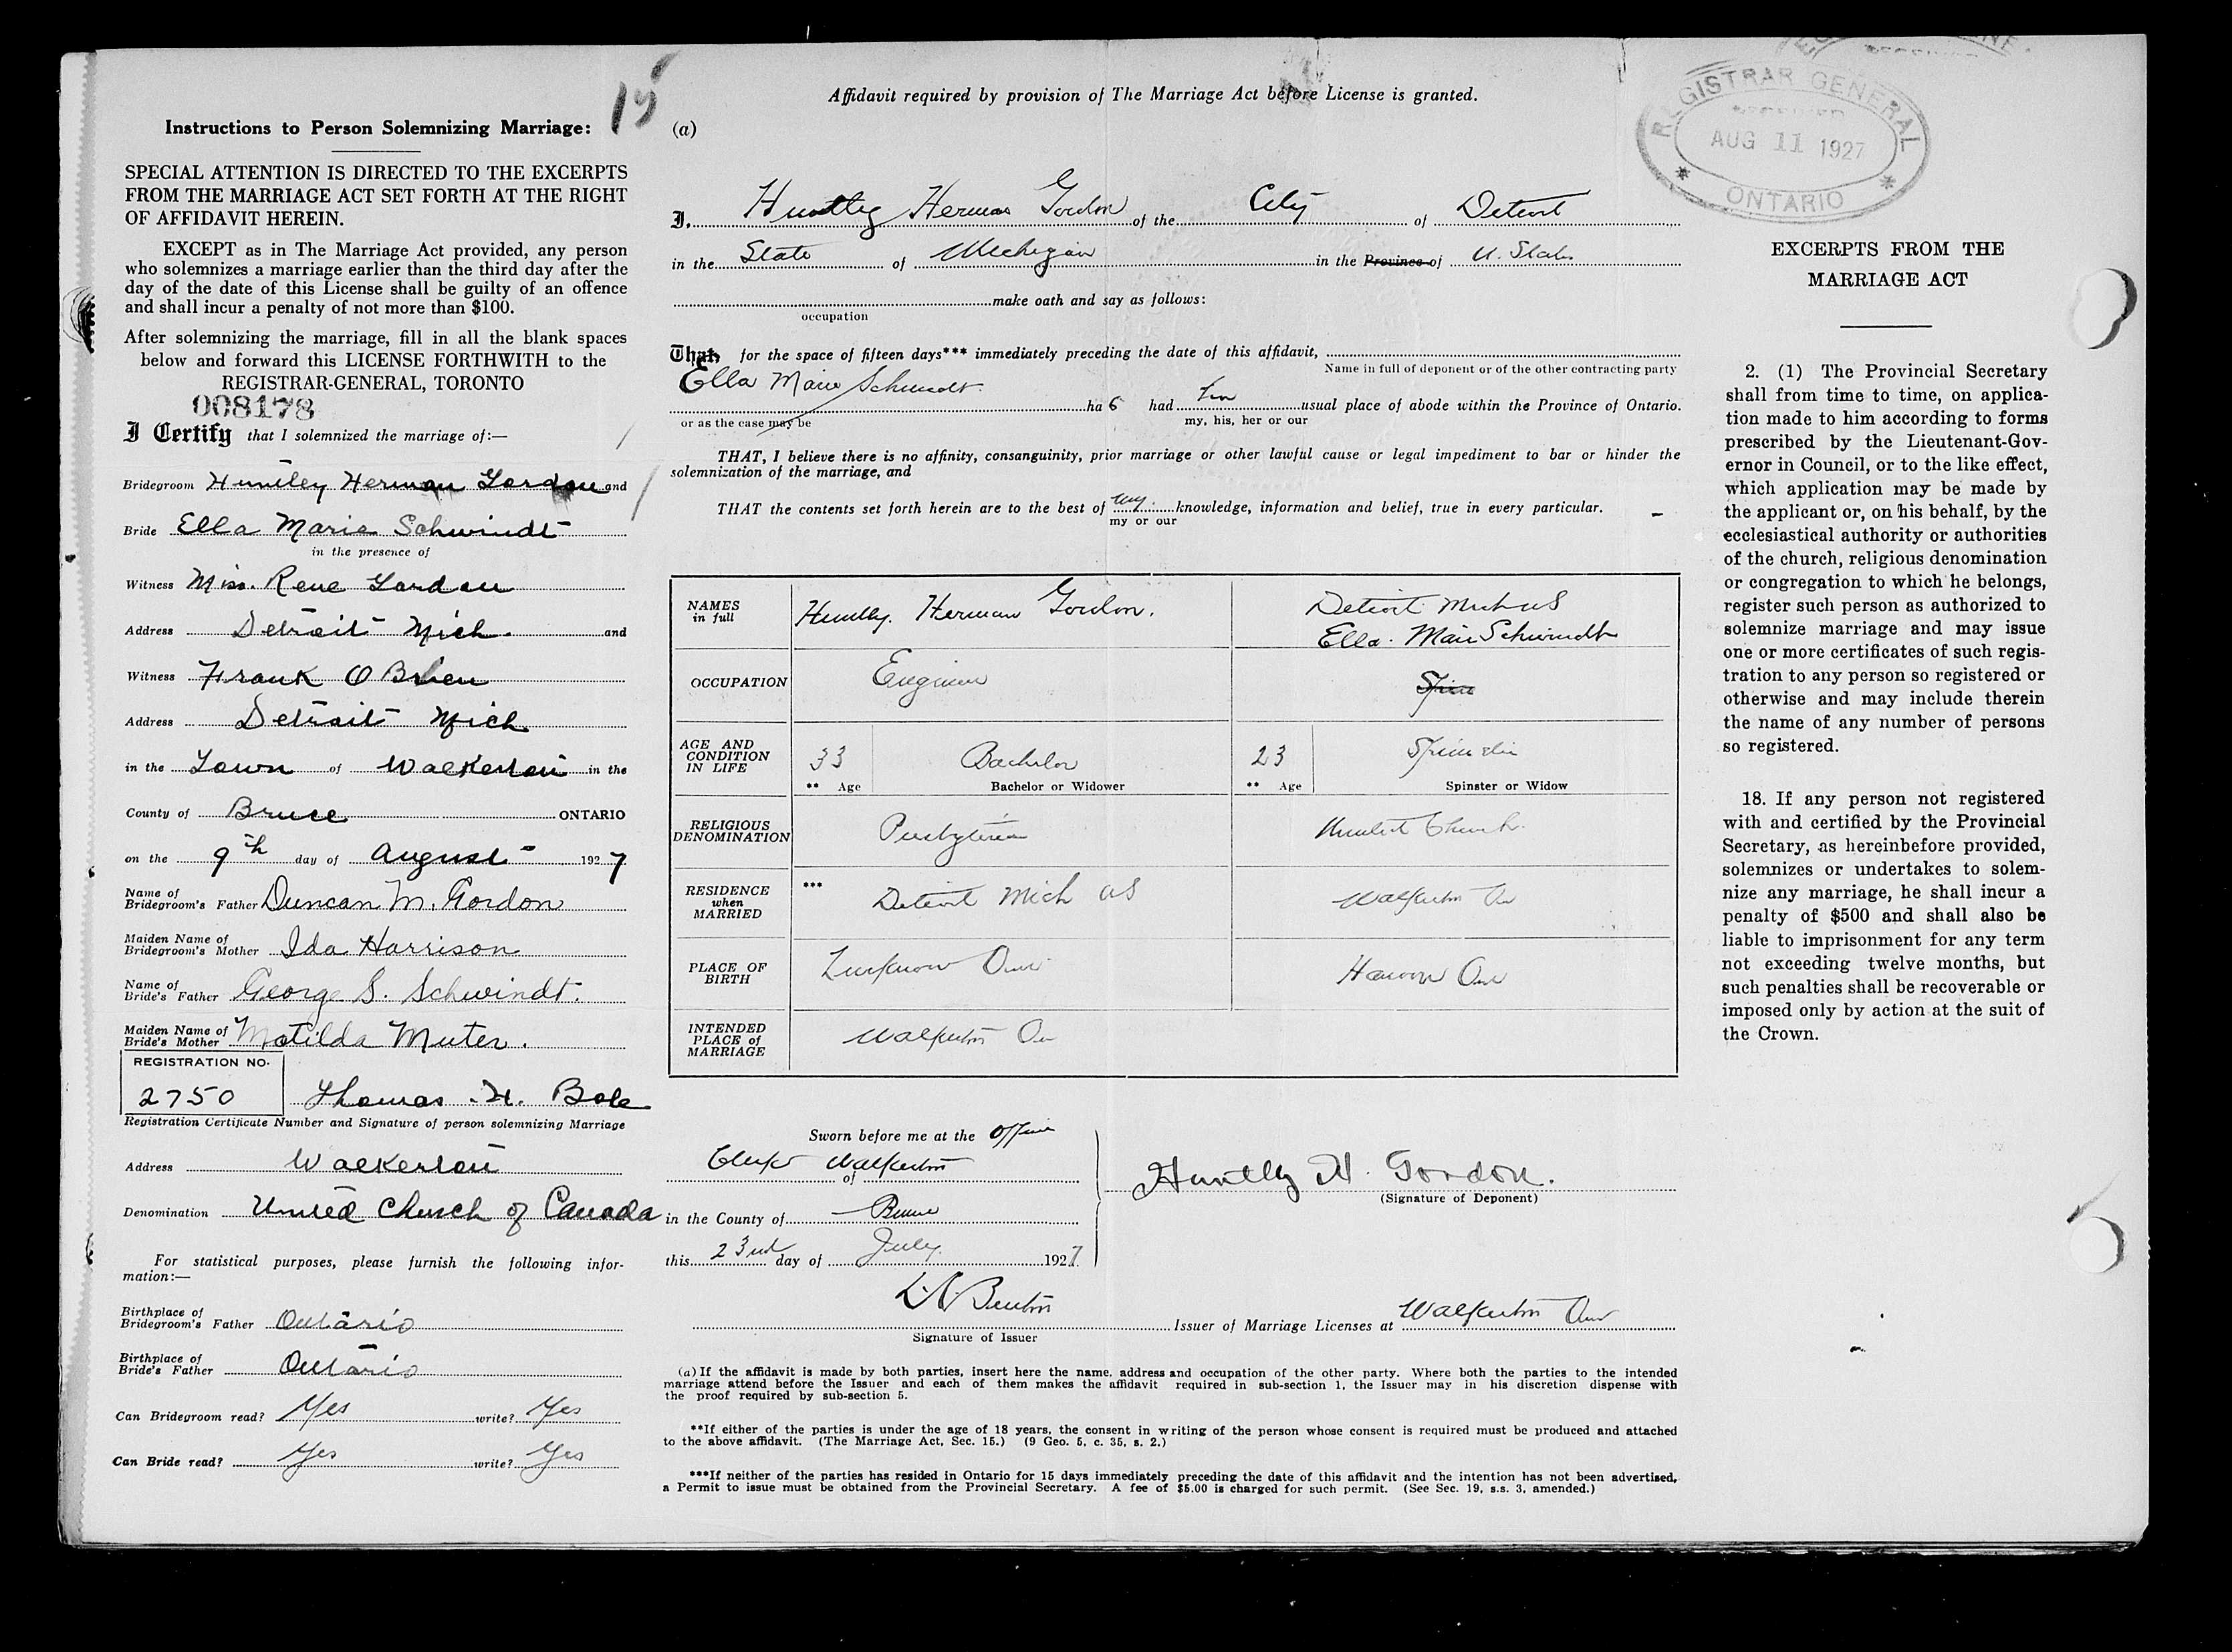 15
Instructions to Person Solemnizing Marriage:
SPECIAL ATTENTION IS DIRECTED TO THE EXCERPTS
FROM THE MARRIAGE ACT SET FORTH AT THE RIGHT
OF AFFIDAVIT HEREIN.
EXCEPT as in The Marriage Act provided, any person
who solemnizes a marriage earlier than the third day after the
day of the date of this License shall be guilty of an offence
and shall incur a penalty of not more than $100.
After solemnizing the marriage, fill in all the blank spaces
below and forward this LICENSE FORTHWITH to the
REGISTRAR-GENERAL, TORONTO
008178
I Certify that I solemnized the marriage of:—
Bridegroom Huntley Herman Gordon and
Bride Ella Marie Schwindt
in the presence of
Witness Miss. Rene Gordon
Address Detroit Mich. and
Witness Frank O Brien
Address Detroit Mich
in the Town of Walkerton in the
County of Bruce ONTARIO
on the 9th day of August 1927
Name of
Bridegroom's Father Duncan M. Gordon
Maiden Name of
Bridegroom's Mother Ida Harrison
Name of
Bride's Father George S. Schwindt.
Maiden Name of
Bride's Mother Matilda Muter.
REGISTRATION NO.
2750 Thomas H. Bole
Registration Certificate Number and Signature of person solemnizing Marriage
Address Walkerton
Denomination United Church of Canada
For statistical purposes, please furnish the following infor-
mation:—
Birthplace of
Bridegroom's Father Ontario
Birthplace of
Bride's Father Ontario
Can Bridegroom read? Yes write? Yes
Can Bride read? Yes write? Yes
Affidavit required by provision of The Marriage Act before License is granted.
(a)
I, Huntley Herman Gordon of the City of Detroit
in the State of Michigan in the Province of U. States
make oath and say as follows:
occupation
That, for the space of fifteen days*** immediately preceding the date of this affidavit,
Name in full of deponent or of the other contracting party
Ella Marie Schwindt
has had her usual place of abode within the Province of Ontario.
or as the case may be my, his, her or our
THAT, I believe there is no affinity, consanguinity, prior marriage or other lawful cause or legal impediment to bar or hinder the
solemnization of the marriage, and
THAT the contents set forth herein are to the best of my knowledge, information and belief, true in every particular.
my or our
NAMES
in full
Huntly. Herman Gordon.
Detroit Mich US
Ella. Marie Schwindt
OCCUPATION
Engineer
AGE AND
CONDITION
IN LIFE
33 Bachelor 23 Spinster
** Age Bachelor or Widower ** Age Spinster or Widow
RELIGIOUS
DENOMINATION
Presbyterian United Church.
RESIDENCE
when
MARRIED
*** Detroit Mich US Walkerton On
PLACE OF
BIRTH
Lucknow Ont Hanover Ont
INTENDED
PLACE of
MARRIAGE
Walkerton On
Sworn before me at the Office
Clerks of Walkerton
in the County of Bruce
this 23rd day of July 1927
Huntly H. Gordon.
(Signature of Deponent)
Signature of Issuer
Issuer of Marriage Licenses at Walkerton Ont
(a) If the affidavit is made by both parties, insert here the name, address and occupation of the other party. Where both the parties to the intended
marriage attend before the Issuer and each of them makes the affidavit required in sub-section 1, the Issuer may in his discretion dispense with
the proof required by sub-section 5.
**If either of the parties is under the age of 18 years, the consent in writing of the person whose consent is required must be produced and attached
to the above affidavit. (The Marriage Act, Sec. 15.) (9 Geo. 5, c. 35, s. 2.)
***If neither of the parties has resided in Ontario for 15 days immediately preceding the date of this affidavit and the intention has not been advertised,
a Permit to issue must be obtained from the Provincial Secretary. A fee of $5.00 is charged for such permit. (See Sec. 19, s.s. 3, amended.)
REGISTRAR GENERAL
RECEIVED
AUG 11 1927
ONTARIO
EXCERPTS FROM THE
MARRIAGE ACT
2. (1) The Provincial Secretary
shall from time to time, on applica-
tion made to him according to forms
prescribed by the Lieutenant-Gov-
ernor in Council, or to the like effect,
which application may be made by
the applicant or, on his behalf, by the
ecclesiastical authority or authorities
of the church, religious denomination
or congregation to which he belongs,
register such person as authorized to
solemnize marriage and may issue
one or more certificates of such regis-
tration to any person so registered or
otherwise and may include therein
the name of any number of persons
so registered.
18. If any person not registered
with and certified by the Provincial
Secretary, as hereinbefore provided,
solemnizes or undertakes to solem-
nize any marriage, he shall incur a
penalty of $500 and shall also be
liable to imprisonment for any term
not exceeding twelve months, but
such penalties shall be recoverable or
imposed only by action at the suit of
the Crown.